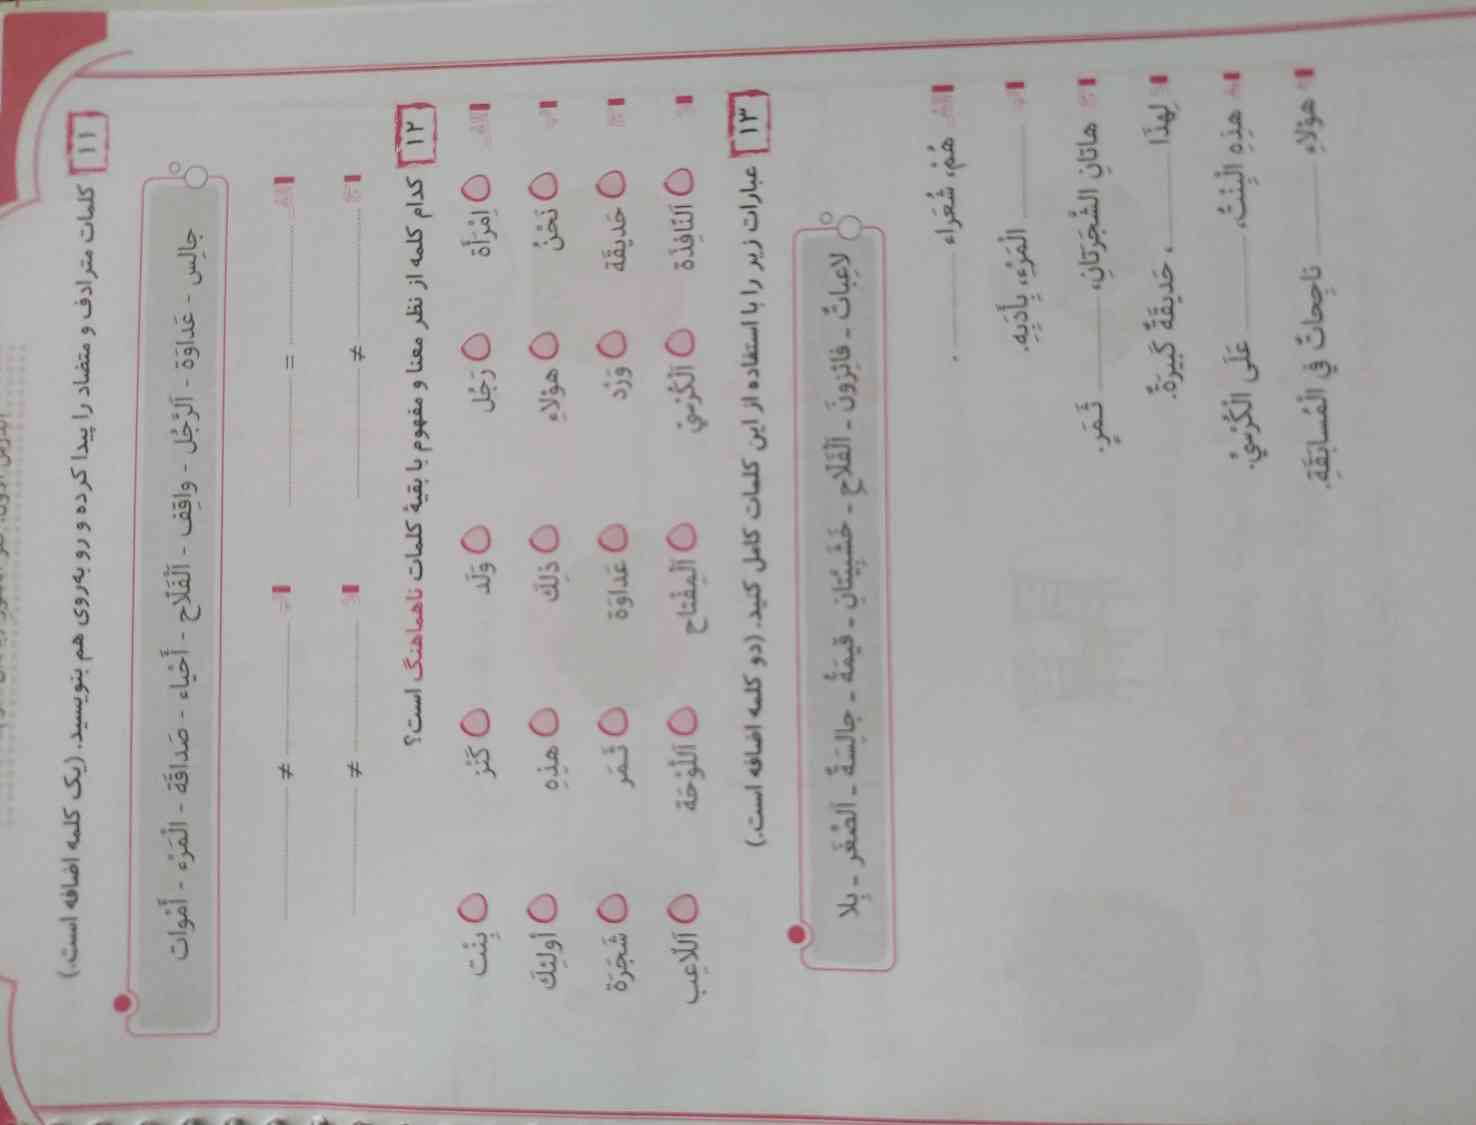 ۱۱ کلمات مترادف و متضاد را پیدا کرده و رو به‌روی هم بنویسید. (یک کلمه اضافه است.)
جالِس - عَداوَة - اَلرَّجُل - واقِف - اَلْفَلّاح - أَحْیاء - صَداقَة - الْمَرْء - أَمْوات
الف ............ = ............ ب ............ ≠ ............
ج ............ ≠ ............ د ............ ≠ ............
۱۲ کدام کلمه از نظر معنا و مفهوم با بقیهٔ کلمات ناهماهنگ است؟
الف اِمْرَأَة رَجُل وَلَد کَنْز بِنْت
ب نَحْنُ هؤُلاءِ ذٰلِكَ هٰذِهِ أُولٰئِكَ
ج حَدیقَة وَرْد عَداوَة ثَمَر شَجَرَة
د اَلنّافِذَة اَلْکُرْسيّ اَلْمِفْتاح اَللَّوْحَة اَللّاعِب
۱۳ عبارات زیر را با استفاده از این کلمات کامل کنید. (دو کلمه اضافه است.)
لاعِباتٌ - فائِزونَ - اَلْفَلّاحِ - خَشَبیَّتانِ - قیمَةُ - جالِسَةٌ - اَلصِّغَر - بِلا
الف هُمْ، شُعَراء ............ .
ب ............ الْمَرْءِ، بِأَدَبِهِ.
ج هاتانِ الشَّجَرَتانِ، ............ ثَمَرٍ.
د لِهٰذَا ............ ، حَدیقَةٌ کَبیرَةٌ.
هـ هٰذِهِ الْبِنْتُ، ............ عَلَی الْکُرْسيِّ.
و هؤُلاءِ ............ ناجِحاتٌ فِي الْمُسابَقَةِ.